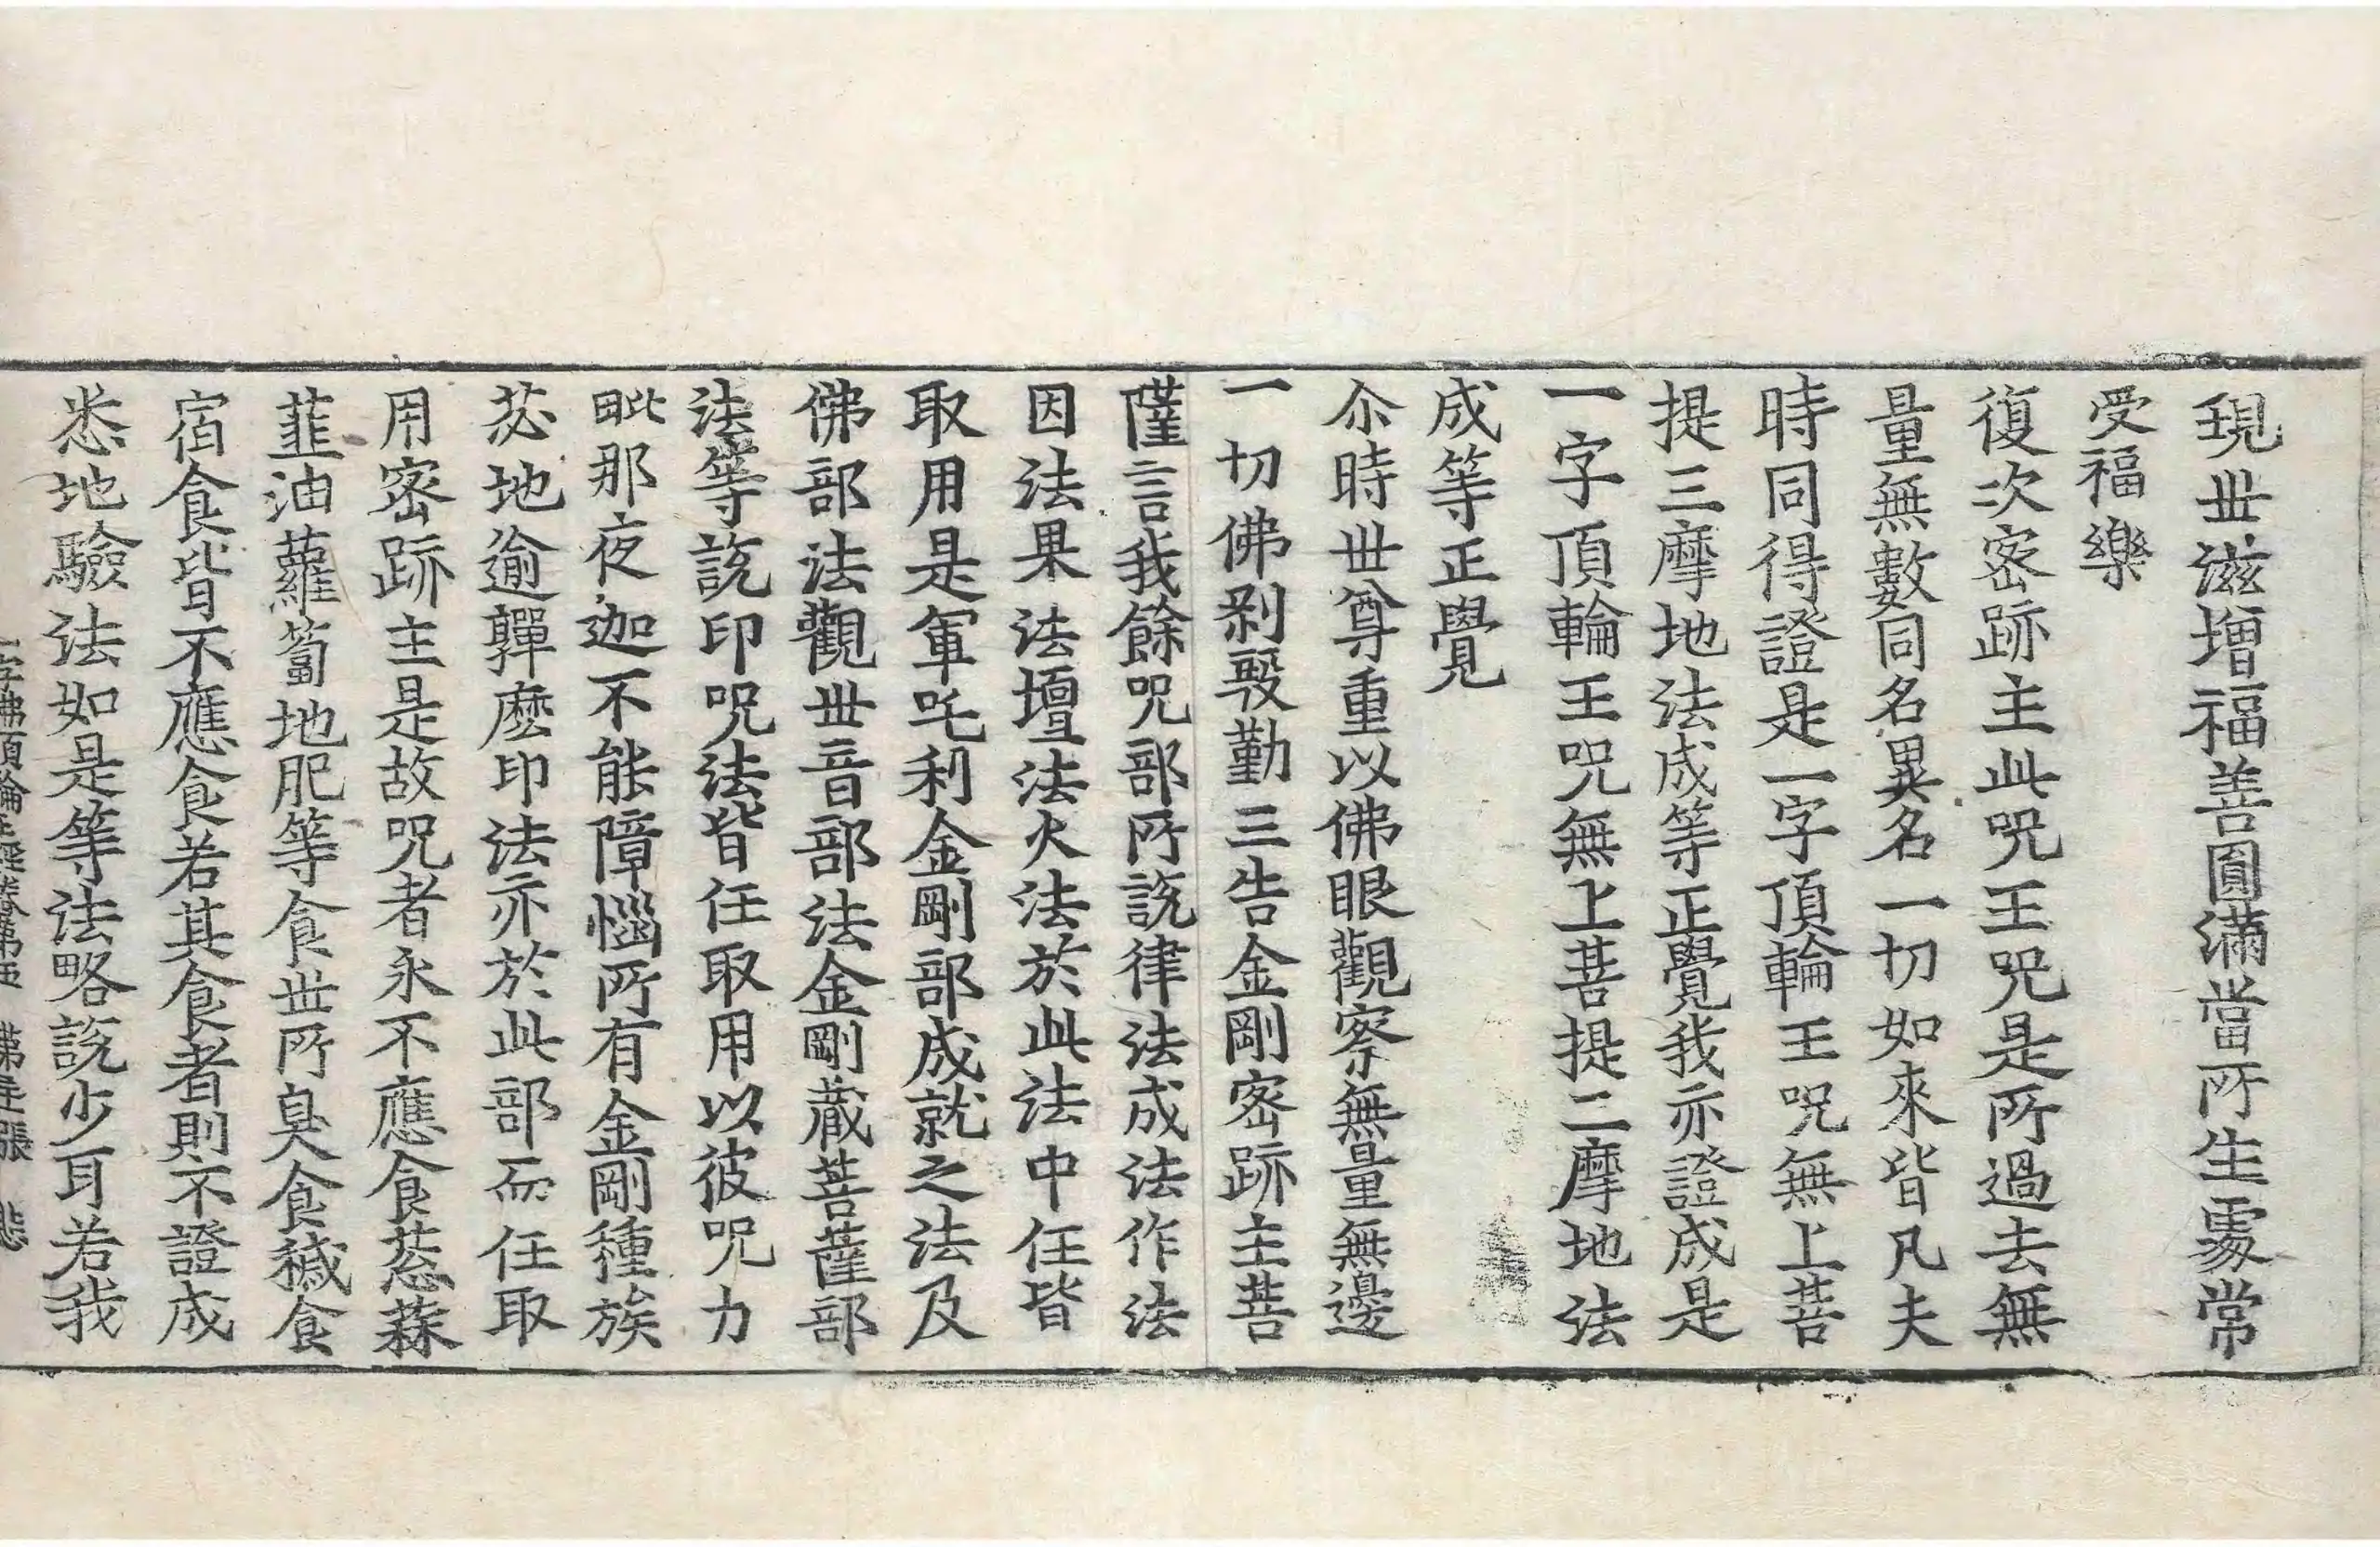 現丗滋增福善圓滿當所生䖏常
受福樂
復次宻跡主此呪王呪是所過去無
量無數同名異名一切如來皆凡夫
時同得證是一字頂輪王呪無上菩
提三摩地法成等正覺我亦證成是
一字頂輪王呪無上菩提三摩地法
成等正覺
尒時丗尊重以佛眼觀察無量無邊
一切佛剎殷勤三告金剛宻跡主菩
薩言我餘呪部所說律法成法作法
因法果法壇法火法於此法中任皆
取用是軍吒利金剛部成就之法及
佛部法觀丗音部法金剛藏菩薩部
法等說印呪法皆任取用以彼呪力
毗那夜迦不能障惱所有金剛種族
苾地逾䩅麽印法亦於此部而任取
用宻跡主是故呪者永不應食葱蒜
韮油蘿蔔地肥等食丗所臭食穢食
宿食皆不應食若其食食者則不證成
悉地驗法如是等法略說少耳若我
一字佛頂輪王經卷第五